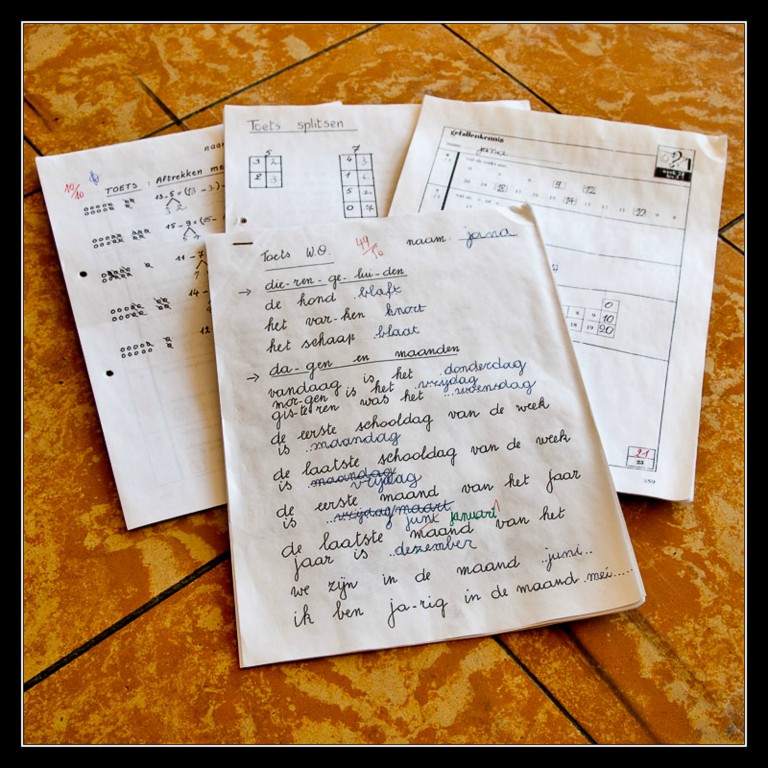 10/10
TOETS : Aftrekken me
13-5=(13-3)-
3 2
15-9=(15-
11-7
14-
12
Toets splitsen
5
3 2
2 3
7
4 3
5 2
0 7
getallenkennis
jana
0
10
20
21
Toets W.O. naam: jana
die-ren-ge-lui-den
de hond blaft
het var-ken knort
het schaap blaat
da-gen en maanden
vandaag is het donderdag
mor-gen is het vrijdag
gis-te-ren was het woensdag
de eerste schooldag van de week
is maandag
de laatste schooldag van de week
is maandag vrijdag
de eerste maand van het jaar
is vrijdag maart juni januari
de laatste maand van het
jaar is dezember
we zijn in de maand juni
ik ben ja-rig in de maand mei